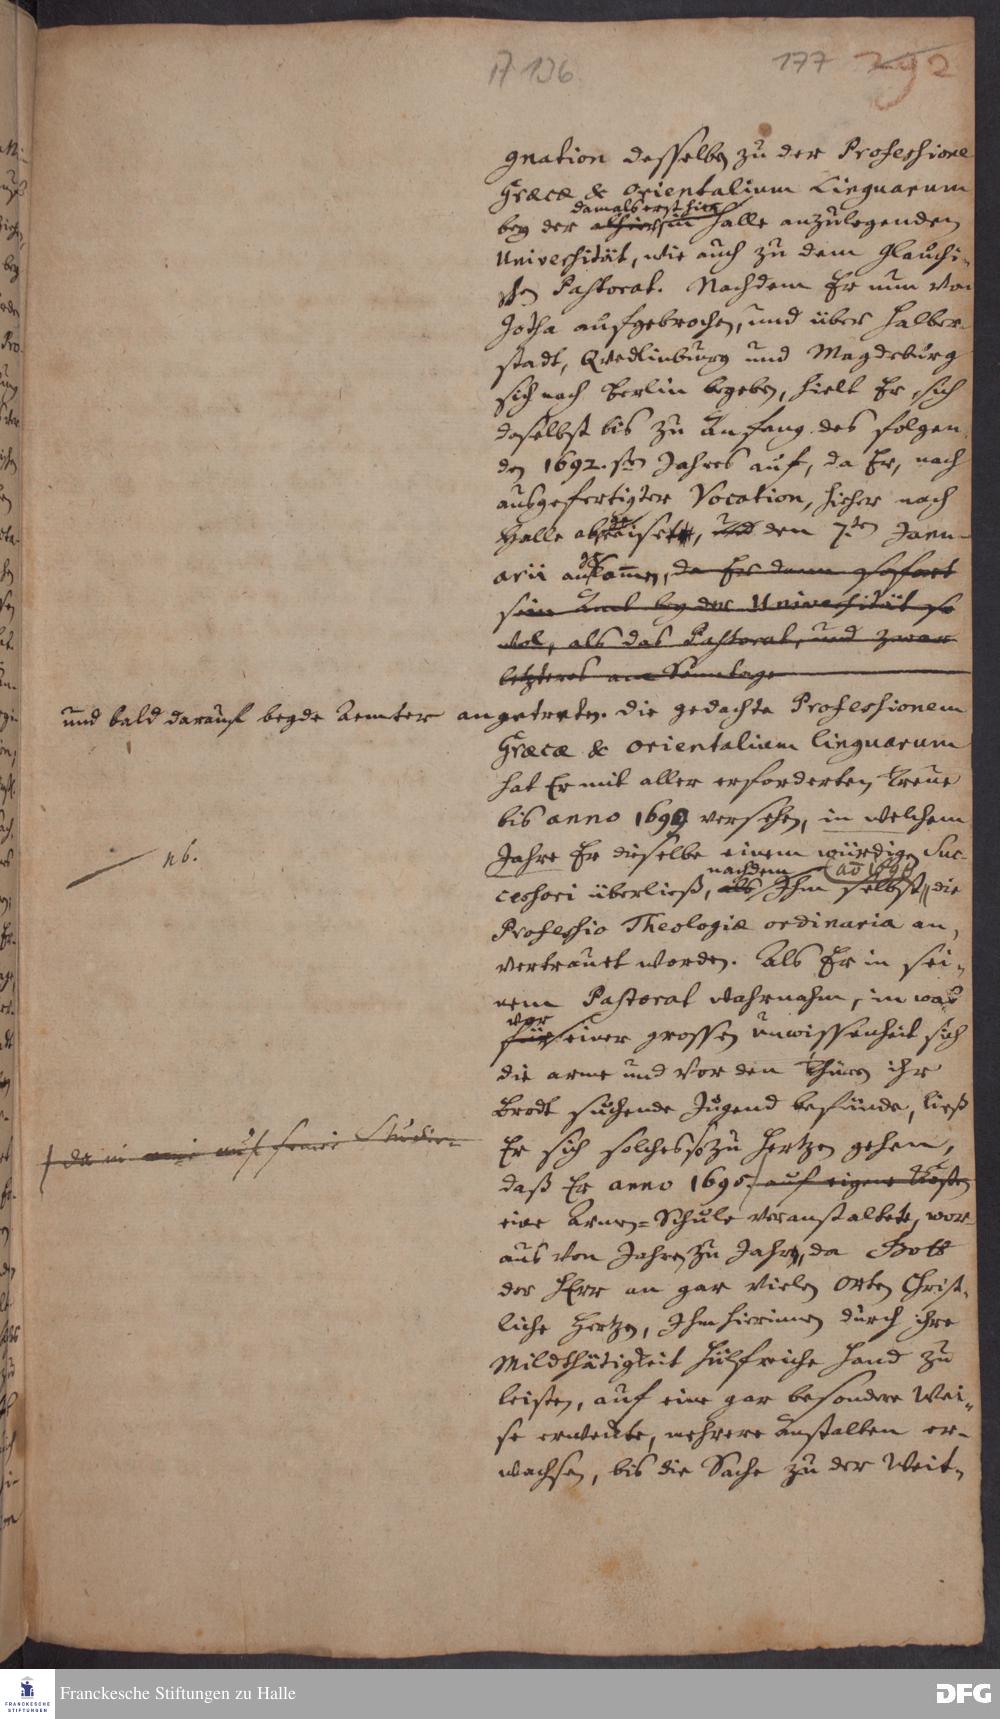 17 136
177 292
gnation desselben zu der Professione
Græcæ & orientalium Linguarum
damals erst hier
bey der alhier in Halle anzulegenden
Universität, wie auch zu dem Glauchi-
schen Pastorat. Nachdem Er nun von
Gotha aufgebrochen, und über Halber-
stadt, Qvedlinburg und Magdeburg
sich nach Berlin begeben, hielt Er sich
daselbst bis zu Anfang des folgen
den 1692.sten Jahres auf, da Er, nach
ausgefertigter Vocation, hieher nach
Halle abreisete, und den 7.ten Janu-
arii ankommen, da Er dann sofort
sein Amt bey der Universität so
wol, als das Pastorat, und zwar
letzteres am Sonntage
und bald darauf beyde Aemter angetreten. Die gedachte Professionem
Græcæ & orientalium linguarum
hat Er mit aller erforderten Treue
bis anno 1699 versehen, in welchem
nb.
Jahre Er dieselbe einem würdigen Suc-
nachdem ao 1698
cessori überließ, als Ihm selbst die
Professio Theologiæ ordinaria an-
vertrauet worden. Als Er in sei-
nem Pastorat wahrnahm, in was
vor
für einer grossen Unwissenheit sich
die arme und vor den Thüren ihr
Brodt suchende Jugend befände, ließ
Er sich solches so zu Hertzen gehen,
daß Er anno 1695. auf eigene Kosten
eine Armen-Schule veranstaltete, wor-
aus von Jahren zu Jahren, da Gott
der HErr an gar vielen Orten Christ-
liche Hertzen, Ihm hierinnen durch ihre
Mildthätigkeit hülfreiche Hand zu
leisten, auf eine gar besondere Wei-
se erweckte, mehrere Anstalten er-
wachsen, bis die Sache zu der Weit-
Franckesche Stiftungen zu Halle
FRANCKESCHE
STIFTUNGEN
DFG